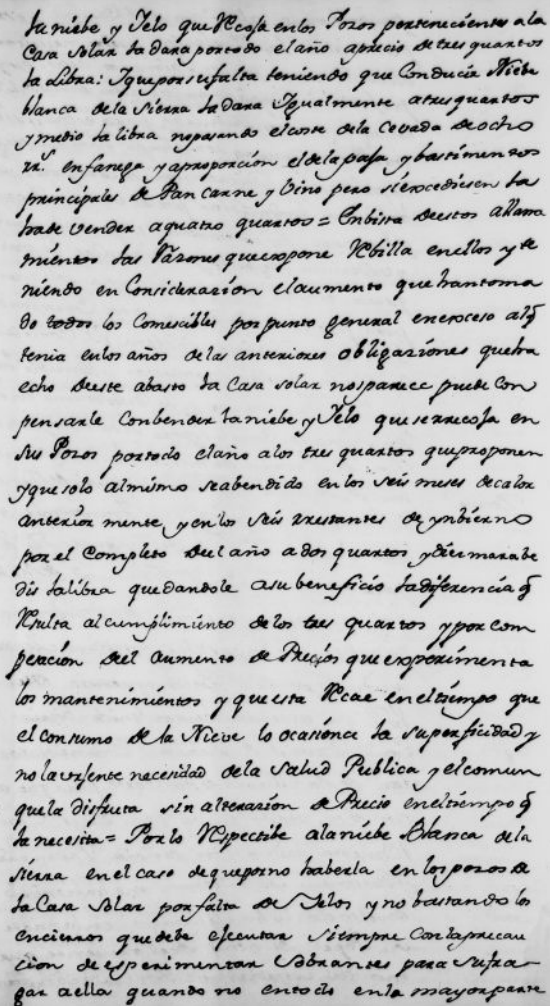 la niebe y Yelo que Recoja en los Pozos pertenecientes a la
Casa Solar la dara por todo el año a precio de tres quartos
la Libra: Y que por su falta teniendo que Conducir Niebe
blanca de la Sierra la dara Ygualmente a tres quartos
y medio la libra no pasando el coste de la Cevada de ocho
rr.s en fanega y a proporcion el de la paja y bastimentos
principales de Pan carne y Vino pero si excediesen la
ha de vender a quatro quartos = En bista de estos allana
mientos las Razones que expone Rebilla en ellos y te
niendo en Consideracion el aumento que han toma
do todos los Comescibles por punto general en exceso al q.
tenia en los años de las anteriores obligaziones que ha
echo de este abasto la Casa solar nos parece puede Con
pensarle con bender la niebe y Yelo que se rrecoja en
sus Pozos por todo el año a los tres quartos que proponen
y que solo al mismo se a bendido en los seis meses de calor
anterior mente y en los seis rrestantes de ynbierno
por el Completo del año a dos quartos y diez marabe
dis la libra quedandole a su beneficio la diferencia q.
Resulta al cumplimiento de los tres quartos y por com
pensacion del aumento de Precios que experimenta
los mantenimientos y que esta Recae en el tiempo que
el consumo de la Nieve lo ocasiona la superficidad y
no la urjente necesidad de la Salud Publica y el comun
que la disfruta sin alterazion de Precio en el tiempo q.
la necesita = Por lo Respectibe a la niebe Blanca de la
sierra en el caso de que por no haberla en los pozos de
la Casa Solar por falta de Yelos y no bastando los
encierros que debe ejecutar siempre con la precau
cion de experimentar sobrantes para sufra-
gar a ella quando no en todo en la mayor parte